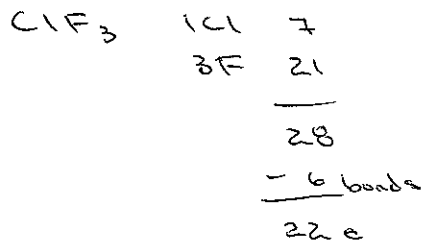 ClF3 1Cl 7
3F 21
28
- 6 bonds
22 e